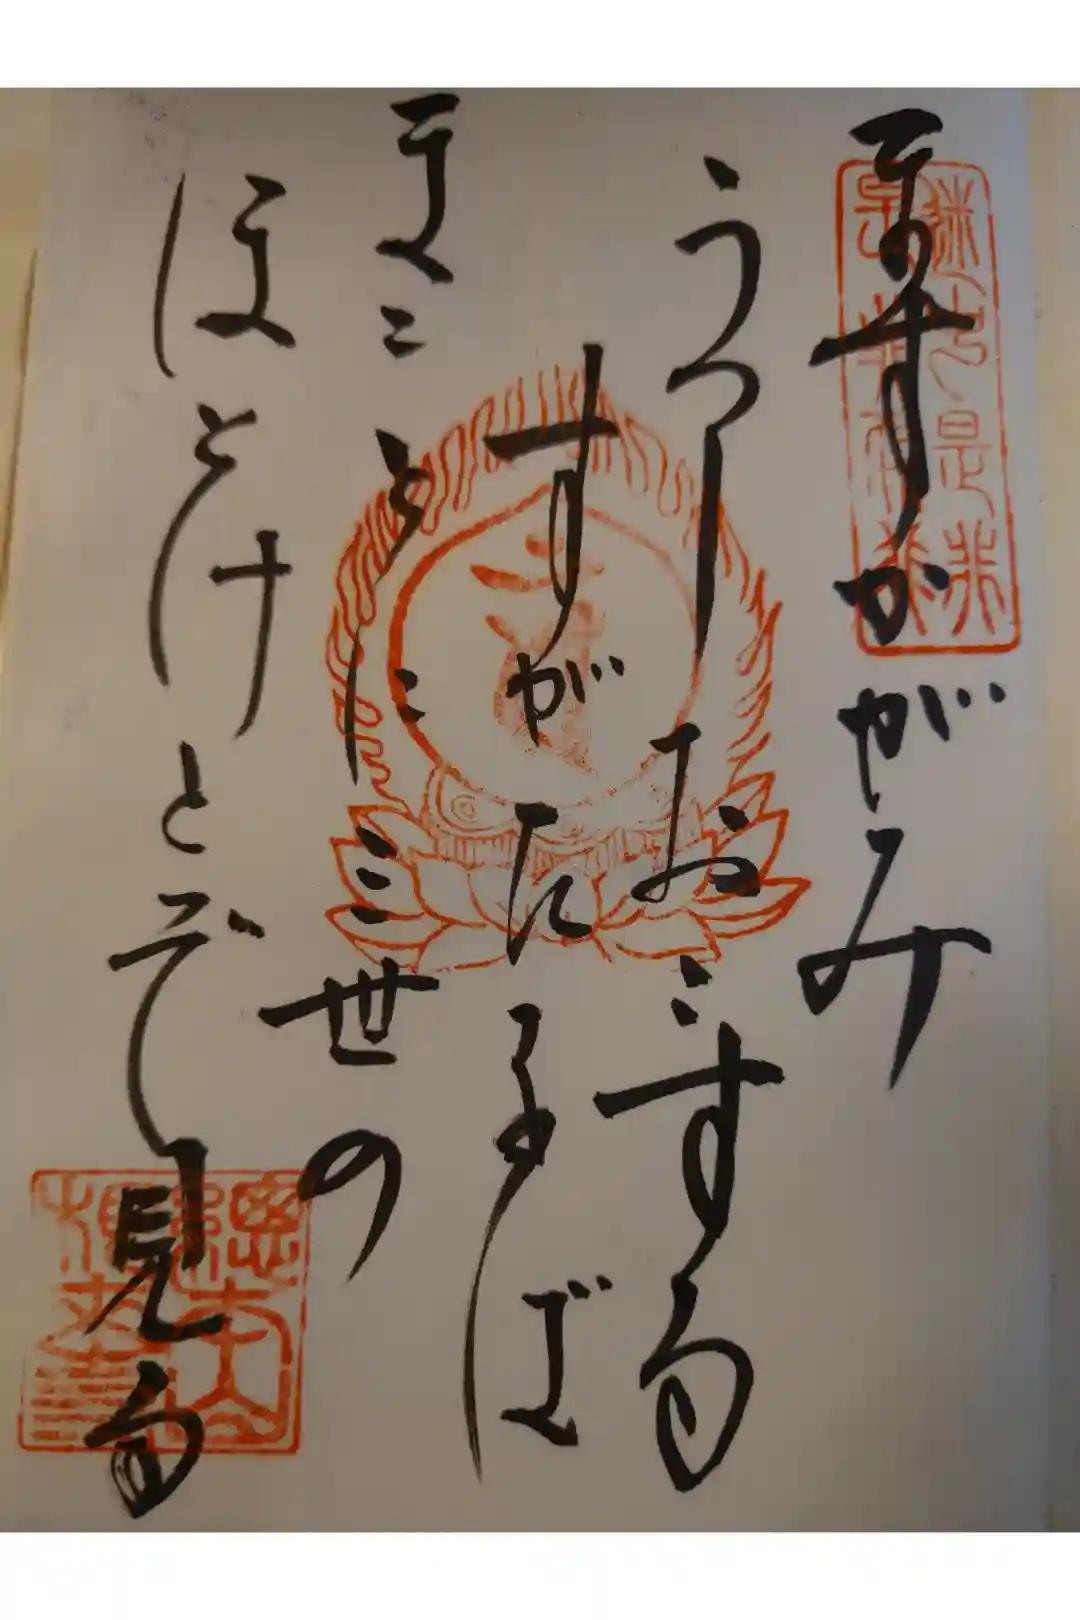 ますかがみ
うつしおこする
すがたをば
まことに三世の
ほとけとぞ見る